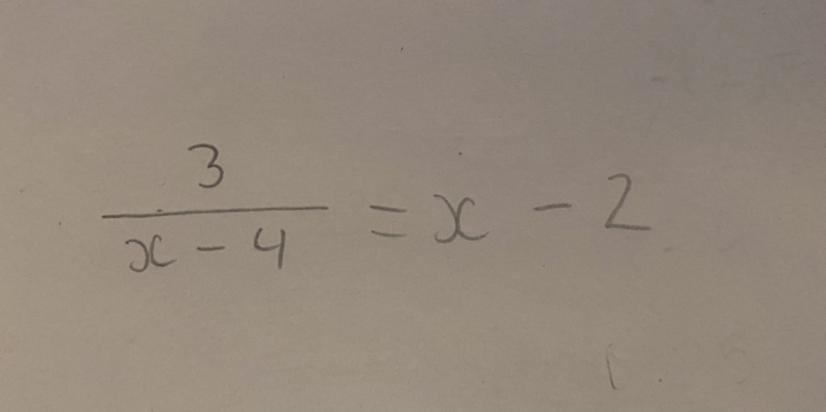 3/(x - 4) = x - 2